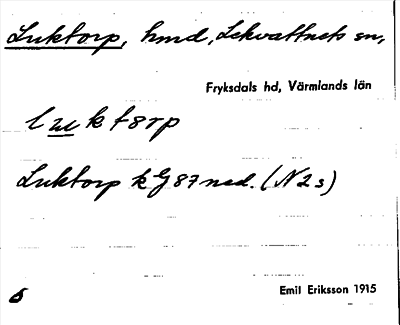 Luktorp, hmd, Lekvattnets sn,
Fryksdals hd, Värmlands län
Luktorp k G 87 ned. (N 2 s)
Emil Eriksson 1915